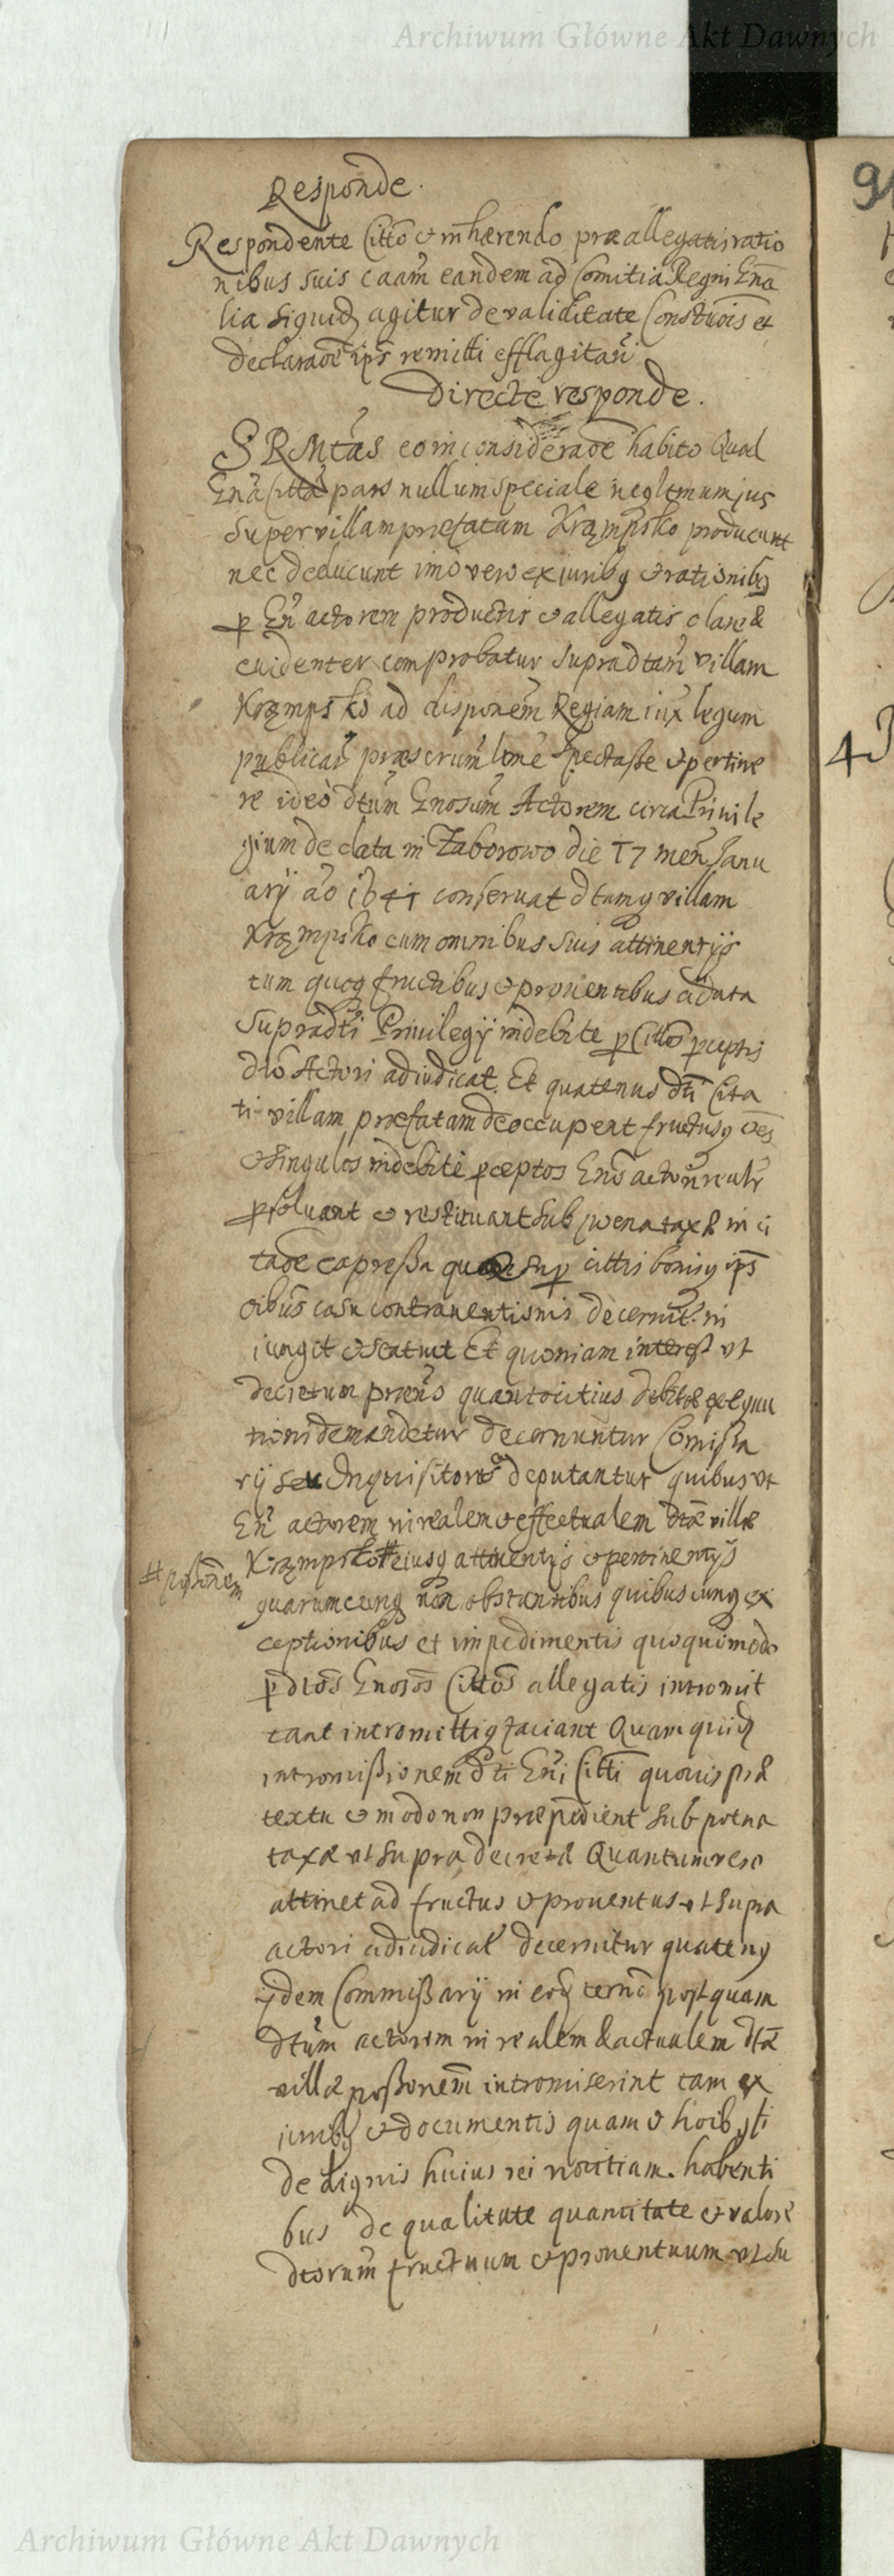 Archiwum Główne Akt Dawnych
Responde.
Respondente Citto et inhærendo præallegatis ratio
nibus suis caam eandem ad Comitia Regni Gna
lia siquid agitur de validitate Constuois et
declaraoe ips remitti efflagitari
Directe responde.
SRMtas eo in consideraoe habito Quod
Gna Citta pars nullum speciale neq ltmum jus
super villam præfatam Krąmpsko producunt
nec deducunt imo vero ex juribq et rationibq
p Gn actorem productis et allegatis clare &
euidenter comprobatur supradtam villam
Krąmpsko ad disponem Regiam iux legum
publicar præscrum bone spectasse et pertine
re ideo dtum Gnosum Actorem circa Priuile
gium de data in Zaborowo die 17 men Janu
arij ao 1641 conseruat dtamq villam
Krąmpsko cum omnibus suis attinentijs
tum quoq fructibus et prouientibus a data
supradti Priuilegij indebite p Cittos pceptis
dto Actori adiudicat. Et quatenus dti Cita
ti villam præfatam deoccupent fructusq oes
et singulos indebite pceptos Gno actori realr
psoluant et restituant sub poena taxæ in ci
taoe expressa quam sup cittis bonisq ips
oibus casu contrauentionis decernit in
iungit et statuit Et quoniam interest vt
decretum præns quantocitius debitæ exequu
tioni demandetur decernuntur Comissa
rij seu Inquisitores deputantur quibus vt
Gn actorem in realem et effectualem dtæ villæ
Krąmpsko # eiusq attinentijs et pertinentijs
# possionem
quarumcunq non obstantibus quibuscunq ex
ceptionibus et impedimentis quoquomodo
p dtos Gnosos Cittos allegatis intromit
tant intromittiq faciant Quam quid
intromissionem dti Gni Citti quouis præ
textu et modo non præpedient sub poena
taxæ vt supra decretæ Quantum vero
attinet ad fructus et prouentus vt supra
actori adiudicat decernitur quatenq
ijdem Commissarij in eod terno postquam
dtum actorem in realem & actualem dtæ
villæ possionem intromiserint tam ex
juribq et documentis quam et hoibq fi
de dignis huius rei notitiam habenti
bus de qualitate quantitate et valore
dtorum fructuum et prouentuum vt su
Archiwum Główne Akt Dawnych